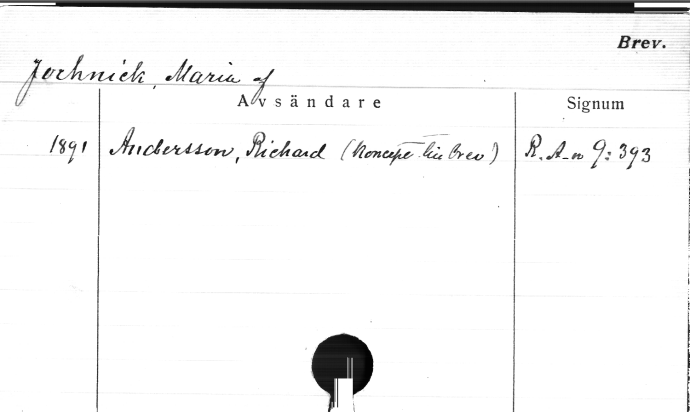 Brev.
Jochnick, Maria af
Avsändare Signum
1891 Andersson, Richard (Koncept till brev) R. A-n 9: 393